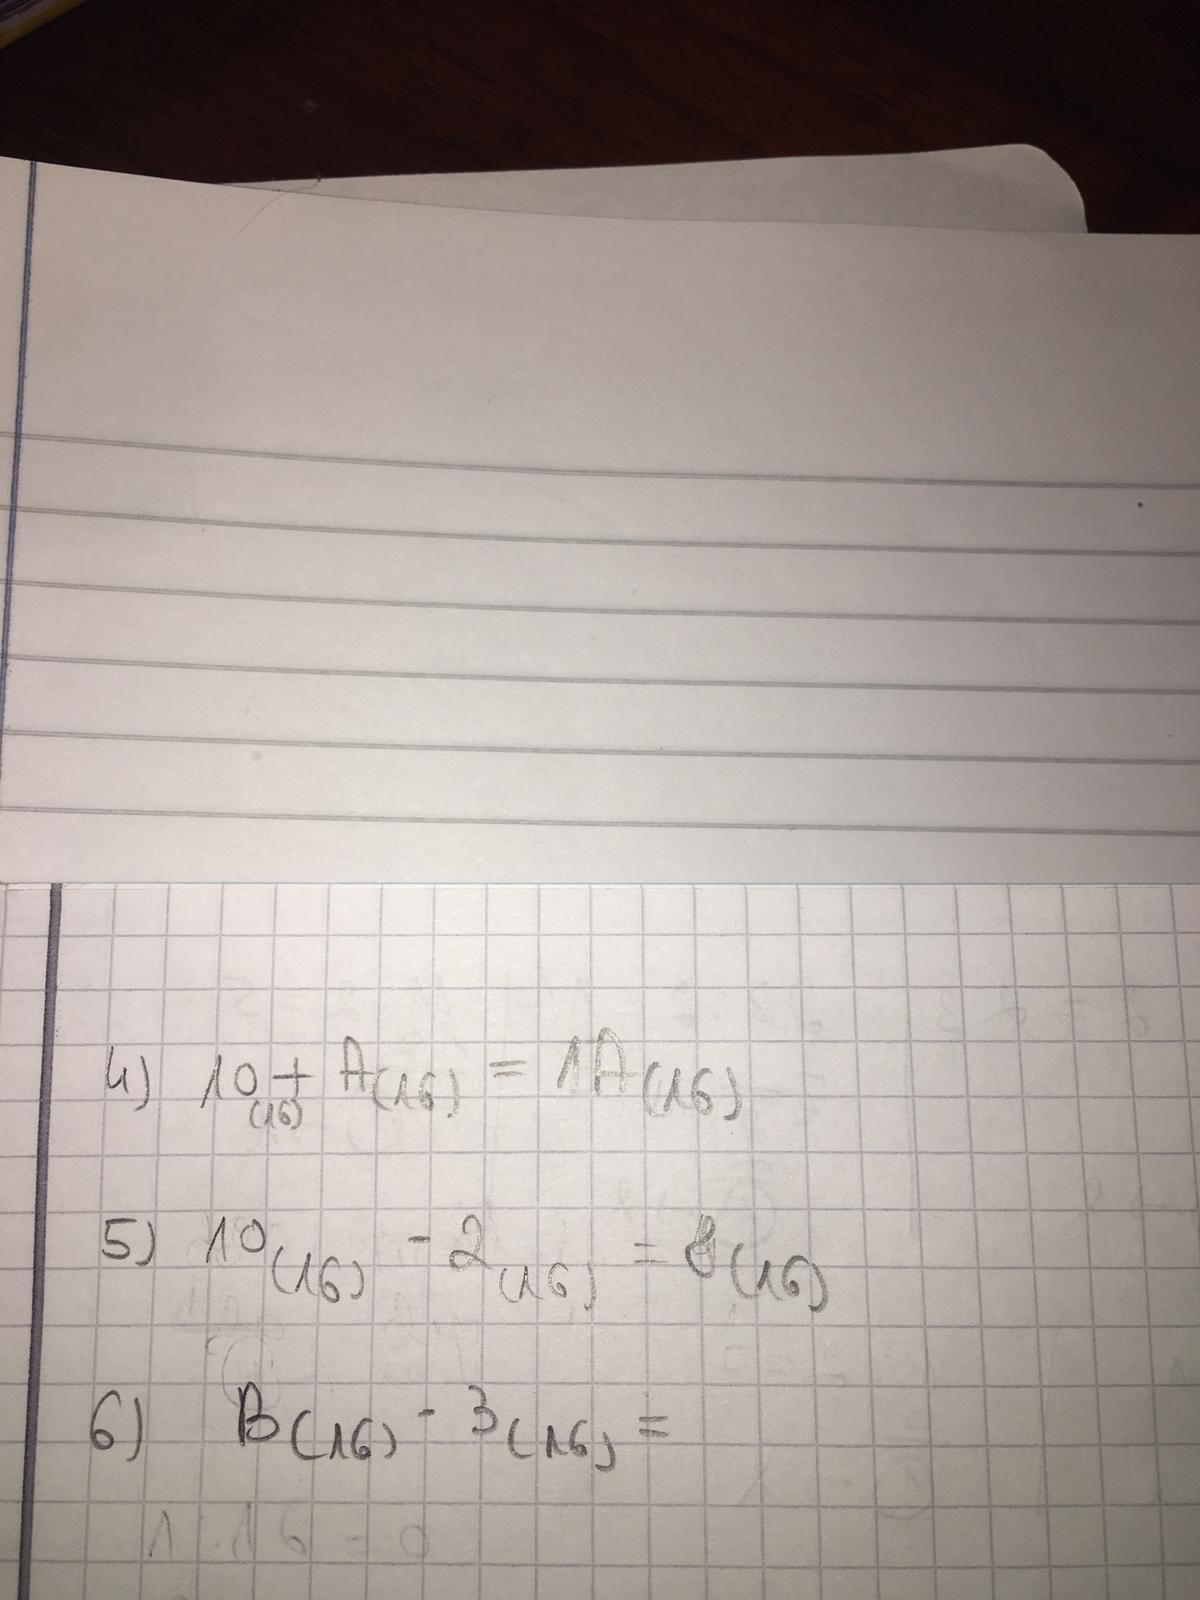 4) 10(16) + A(16) = 1A(16)
5) 10(16) - 2(16) = 8(16)
6) B(16) - 3(16) =